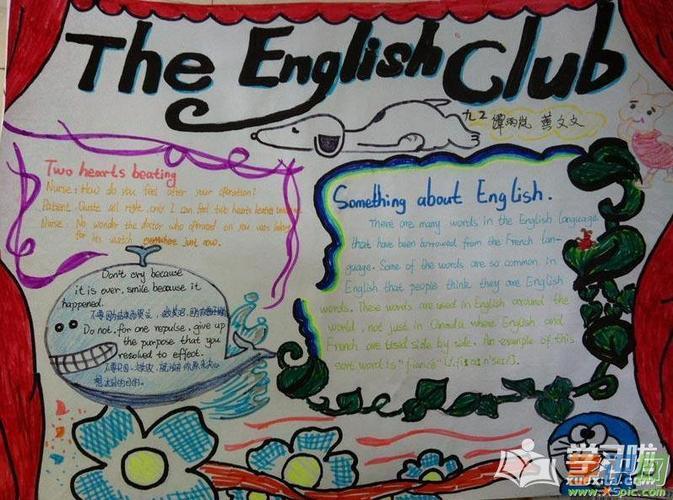 The English Club
九2 谭雨岚 黄文文
Two hearts beating
Nurse: How do you feel after your operation?
Patient: Quite all right, only I can feel two hearts beating
Nurse: No wonder the doctor who operated on you was looking
for his watch just now.
Don't cry because
it is over, smile because it
happened.
Do not, for one repulse, give up
the purpose that you
resolved to effect.
Something about English.
There are many words in the English language
that have been borrowed from the French lan-
guage. Some of the words are so common in
English that people think they are English
words. These words are used in English around the
world, not just in Canada where English and
French are used side by side. An example of this
sort word is "fiance"
学习啦
xuexila.com
www.x5pic.com